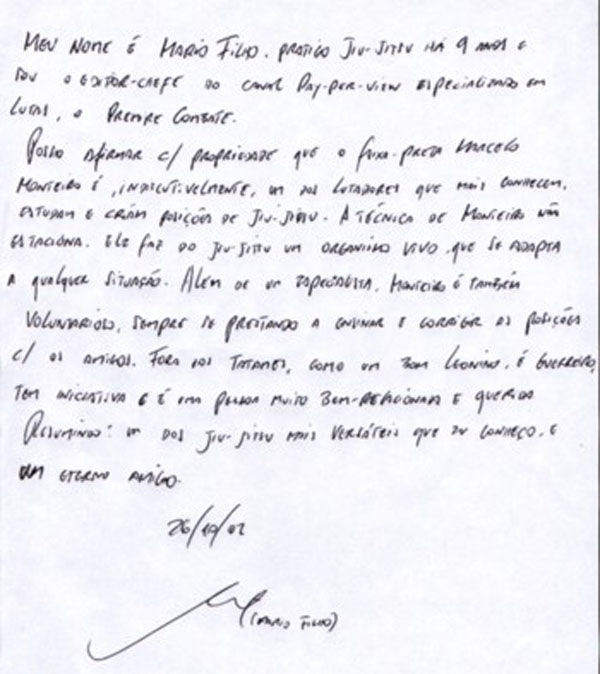 MEU NOME É MARIO FILHO. PRATICO JIU-JITSU HÁ 9 ANOS E
SOU O EDITOR-CHEFE DO CANAL PAY-PER-VIEW ESPECIALIZADO EM
LUTAS, O PREMIRE COMBATE.
POSSO AFIRMAR C/ PROPRIEDADE QUE O FAIXA-PRETA MARCELO
MONTEIRO É, INDISCUTIVELMENTE, UM DOS LUTADORES QUE MAIS CONHECEM,
ESTUDAM E CRIAM POSIÇÕES DE JIU-JITSU. A TÉCNICA DE MONTEIRO NÃO
ESTACIONA. ELE FAZ DO JIU-JITSU UM ORGANISMO VIVO, QUE SE ADAPTA
A QUALQUER SITUAÇÃO. ALÉM DE UM ESPECIALISTA, MONTEIRO É TAMBÉM
VOLUNTARIOSO, SEMPRE SE PRESTANDO A ENSINAR E CORRIGIR AS POSIÇÕES
C/ OS AMIGOS. FORA DOS TATAMES, COMO UM BOM LEONINO, É GUERREIRO,
TEM INICIATIVA E É UMA PESSOA MUITO BEM-RELACIONADA E QUERIDA.
RESUMINDO: UM DOS JIU-JITSU MAIS VERSÁTEIS QUE EU CONHEÇO, E
UM ETERNO AMIGO.
26/10/02
(MARIO FILHO)